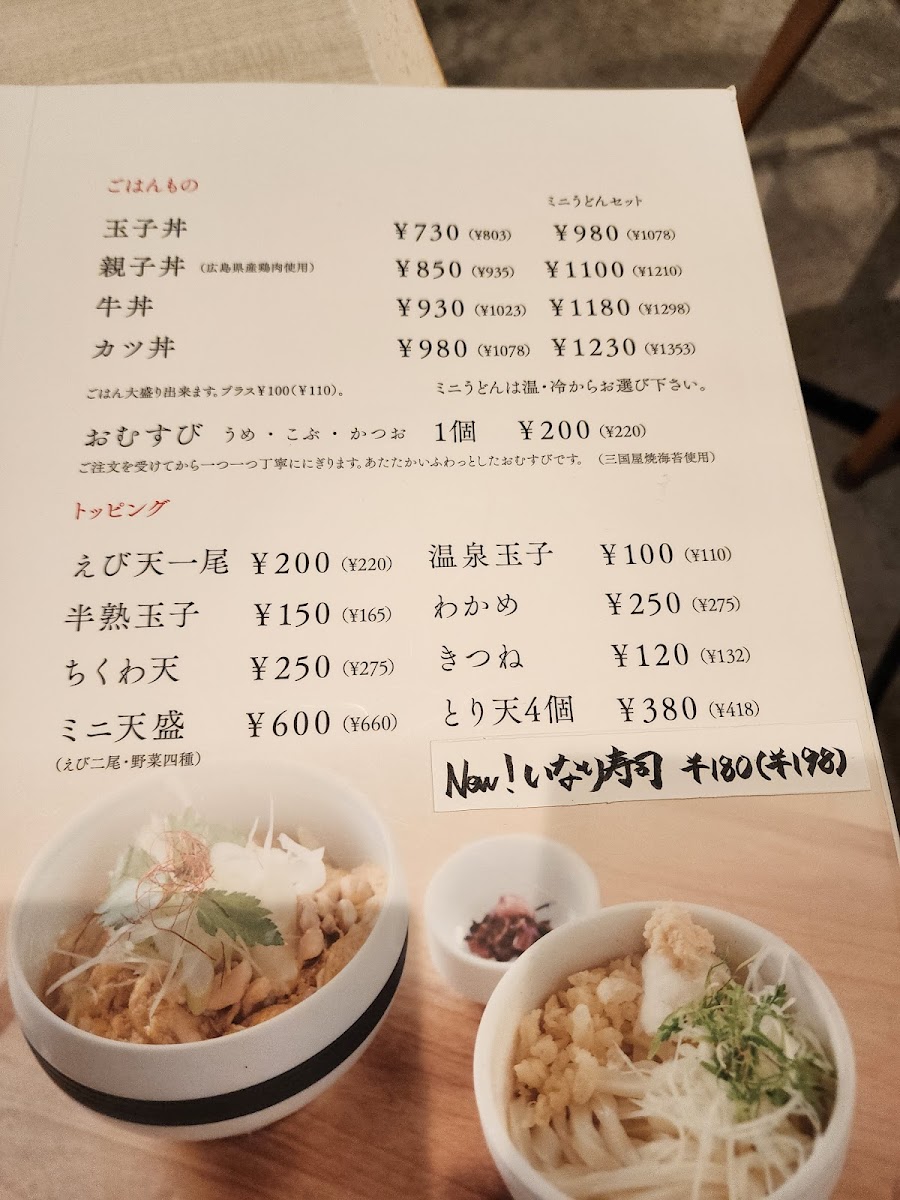 ごはんもの
ミニうどんセット
玉子丼 ¥730(¥803) ¥980(¥1078)
親子丼(広島県産鶏肉使用) ¥850(¥935) ¥1100(¥1210)
牛丼 ¥930(¥1023) ¥1180(¥1298)
カツ丼 ¥980(¥1078) ¥1230(¥1353)
ごはん大盛り出来ます。プラス¥100(¥110)。 ミニうどんは温・冷からお選び下さい。
おむすび うめ・こぶ・かつお 1個 ¥200(¥220)
ご注文を受けてから一つ一つ丁寧ににぎります。あたたかいふわっとしたおむすびです。(三国屋焼海苔使用)
トッピング
えび天一尾 ¥200(¥220) 温泉玉子 ¥100(¥110)
半熟玉子 ¥150(¥165) わかめ ¥250(¥275)
ちくわ天 ¥250(¥275) きつね ¥120(¥132)
ミニ天盛 ¥600(¥660) とり天4個 ¥380(¥418)
(えび二尾・野菜四種)
New!いなり寿司 ¥180(¥198)